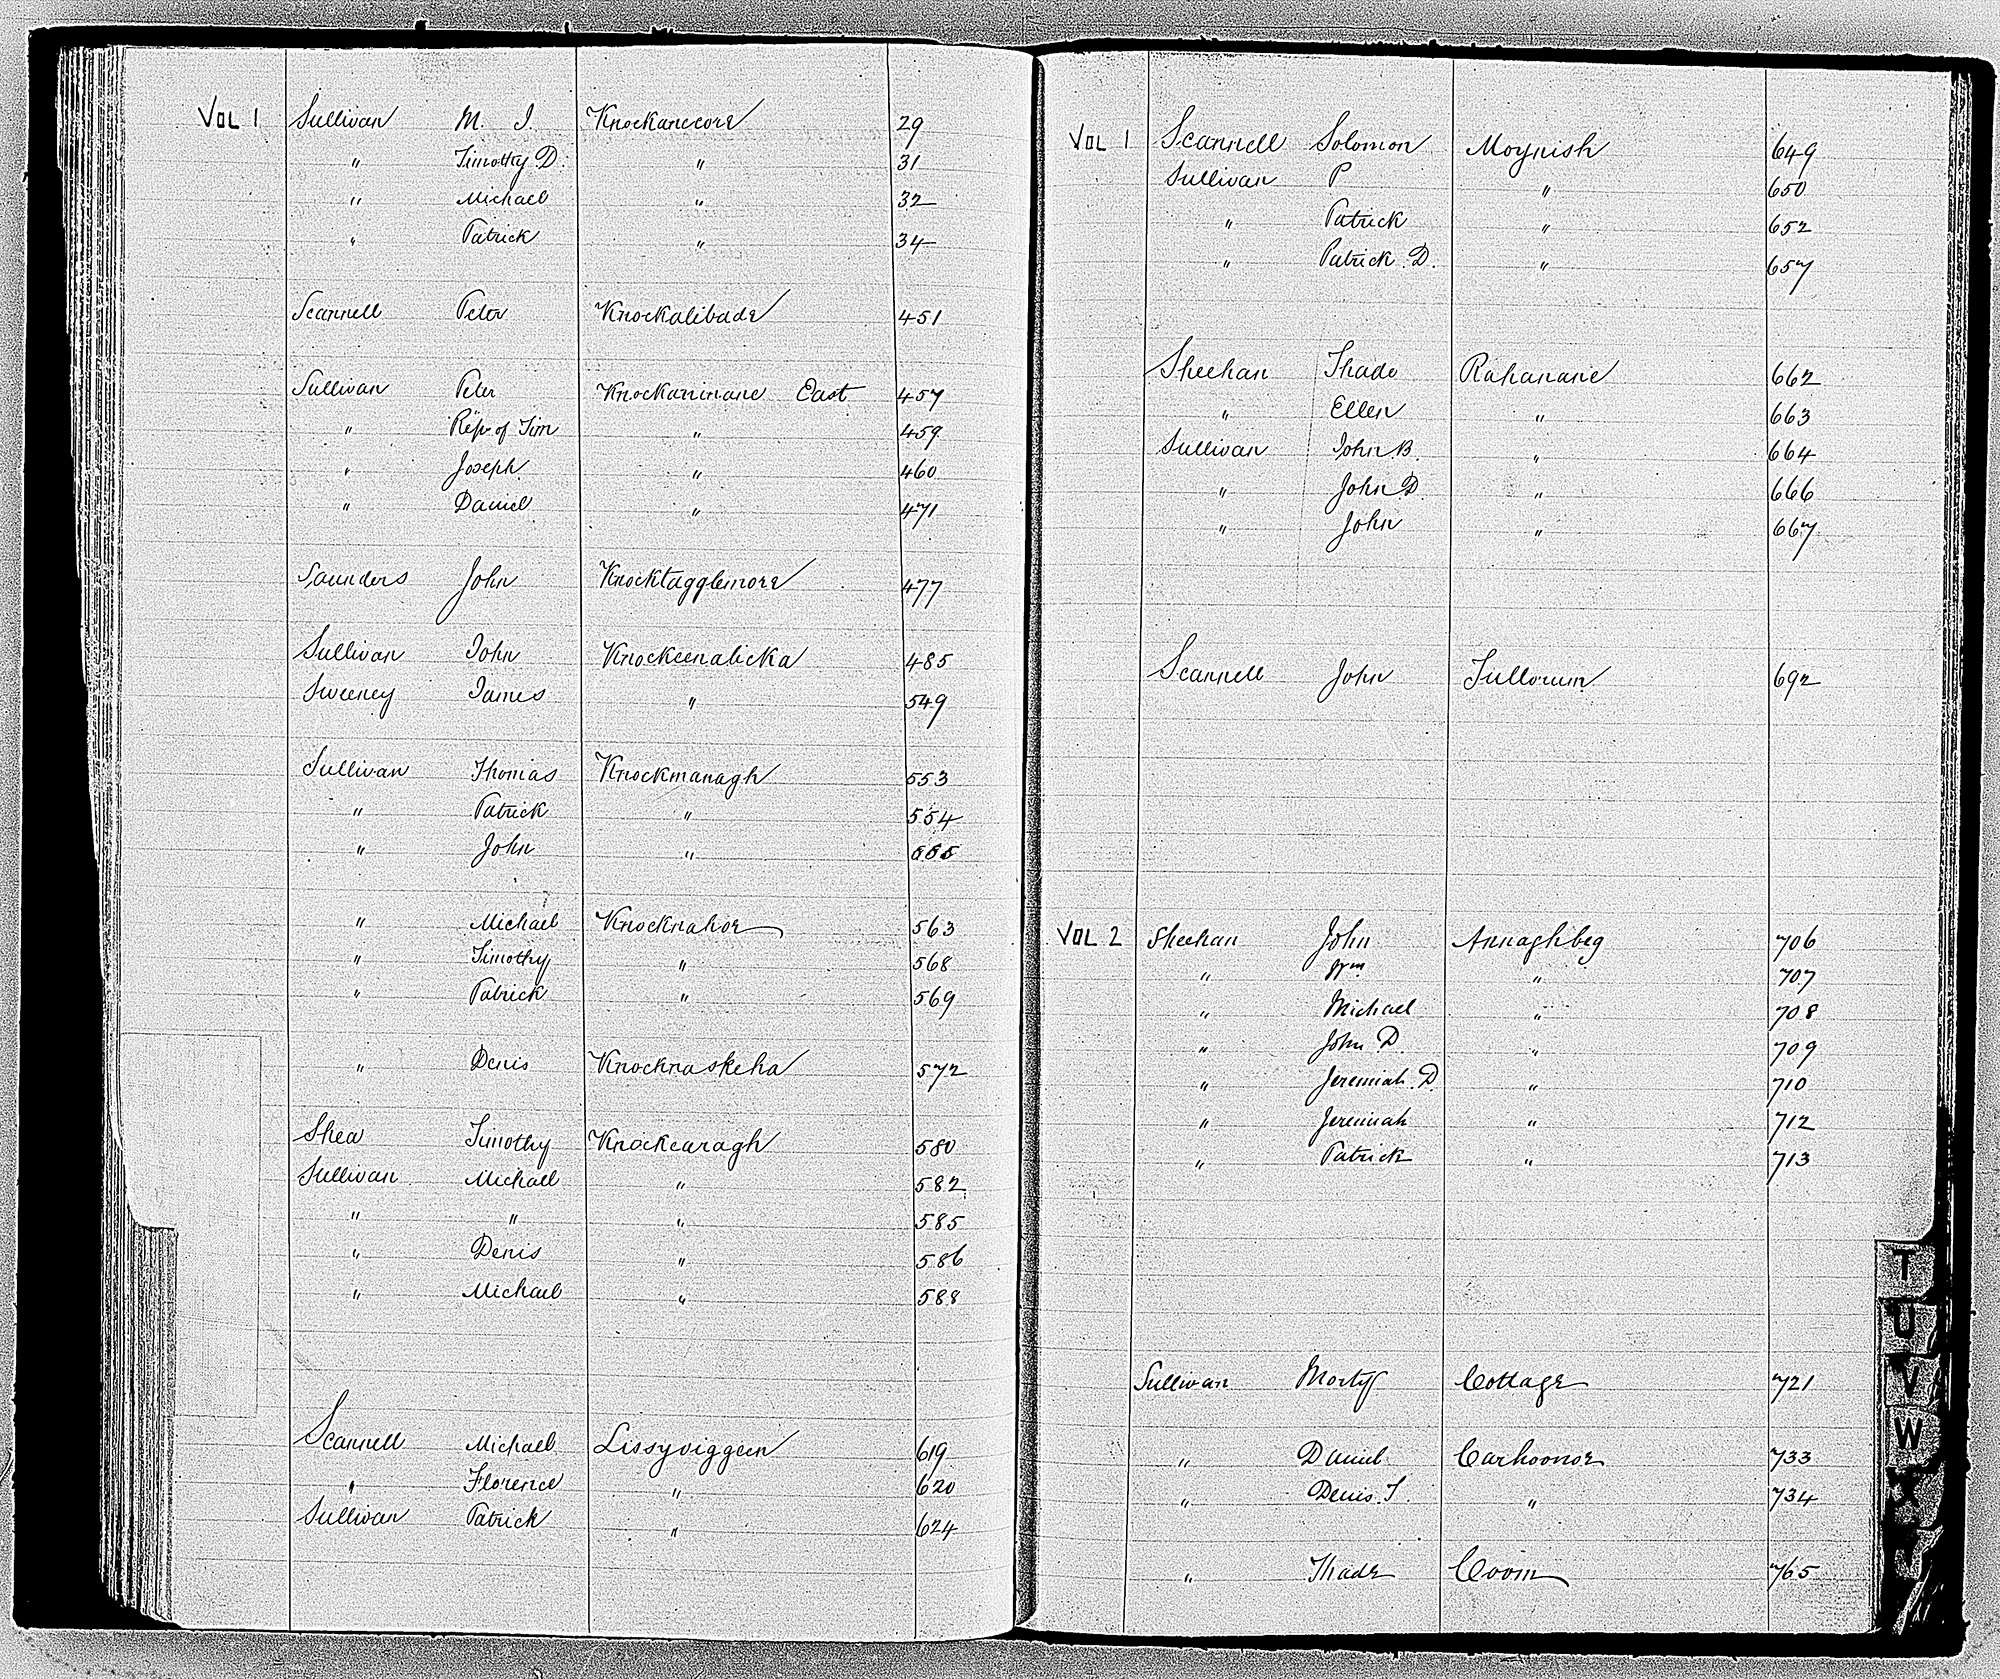 VOL 1 Sullivan M. J. Knockanecore 29
" Timothy D. " 31
" Michael " 32
" Patrick " 34
Scannell Peter Knockalibade 451
Sullivan Peter Knockaninane East 457
" Reps of Tim " 459
" Joseph " 460
" Daniel " 471
Saunders John Knocktagglemore 477
Sullivan John Knockeenalicka 485
Sweeney James " 549
Sullivan Thomas Knockmanagh 553
" Patrick " 554
" John " 555
" Michael Knocknahoe 563
" Timothy " 568
" Patrick " 569
" Denis Knocknaskeha 572
Shea Timothy Knockearagh 580
Sullivan Michael " 582
" " " 585
" Denis " 586
" Michael " 588
Scannell Michael Lissyviggeen 619
" Florence " 620
Sullivan Patrick " 624
VOL 1 Scannell Solomon Moynish 649
Sullivan P " 650
" Patrick " 652
" Patrick D. " 657
Sheehan Thade Rahanane 662
" Ellen " 663
Sullivan John B. " 664
" John D. " 666
" John " 667
Scannell John Tullorum 692
VOL 2 Sheehan John Annaghbeg 706
" Wm " 707
" Michael " 708
" John D. " 709
" Jeremiah D. " 710
" Jeremiah " 712
" Patrick " 713
Sullivan Morty Cottage 721
" Daniel Carhoonoe 733
" Denis T. " 734
" Thade Coom 765
T
U
V
W
X